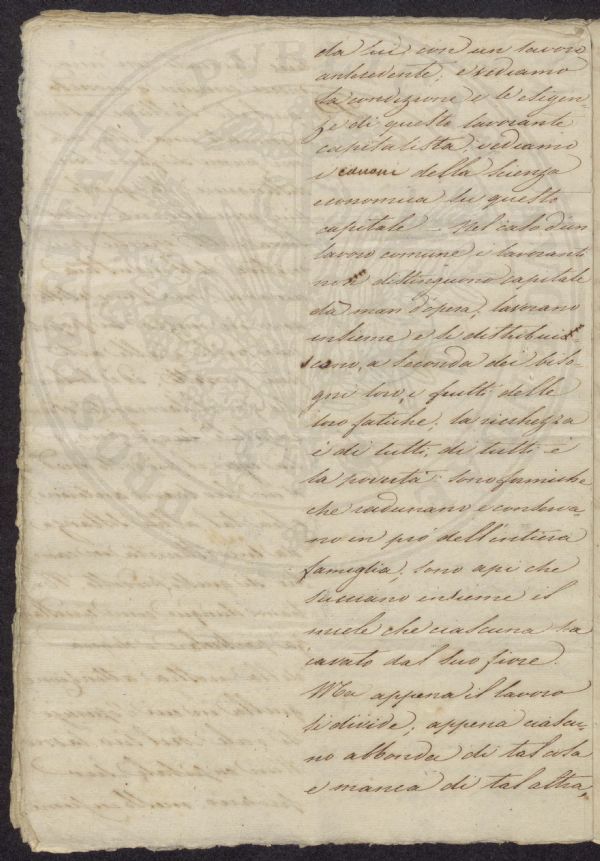 da lui con un lavoro
antecedente; e vediamo
la condizione e le esigen-
ze di questo lavorante
capitalista, vediamo
i canoni della scienza
economica su questo
capitale – Nel caso d'un
lavoro comune i lavoranti
non distinguono capitale
da man d'opera, lavorano
insieme e si distribui-
scono, a seconda dei biso-
gni loro, i frutti delle
loro fatiche; la ricchezza
è di tutti, di tutti è
la povertà: sono formiche
che radunano e conserva-
no in pró dell'intiera
famiglia, sono api che
succiano insieme il
miele che ciascuna ha
cavato dal suo fiore.
Ma appena il lavoro
si divide; appena ciascu-
no abbonda di tal cosa
e manca di tal altra,
PUB